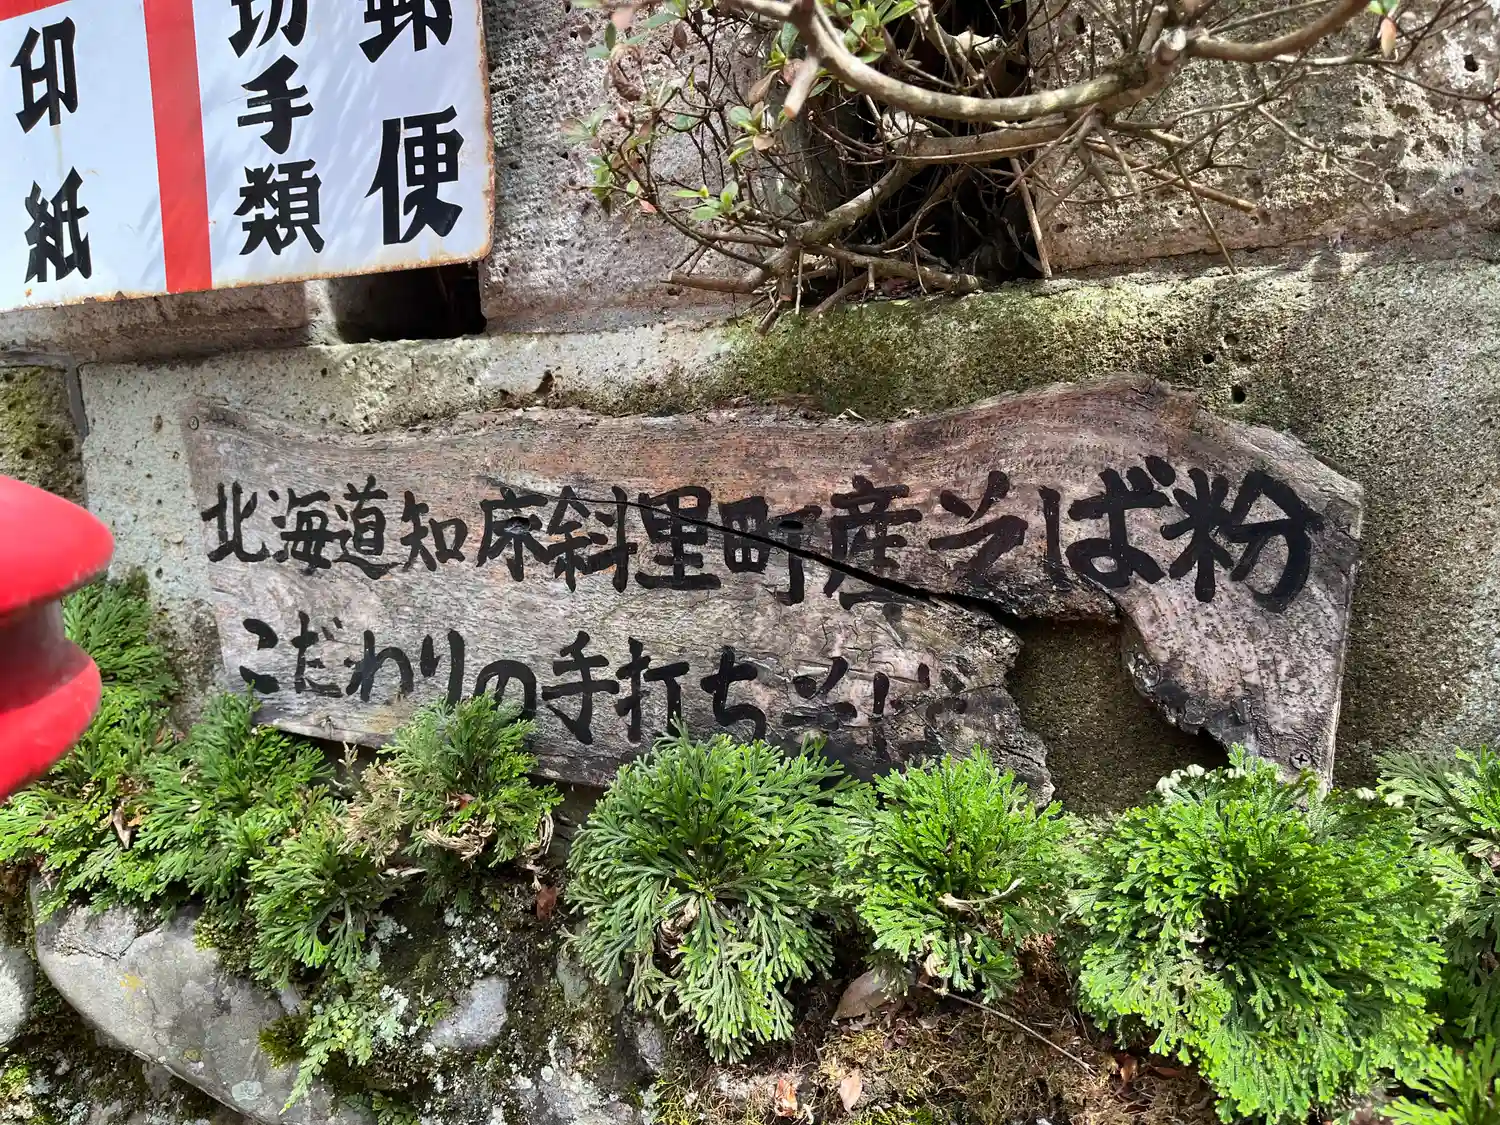 郵便
切手類
印紙
北海道知床斜里町産そば粉
こだわりの手打ちそば